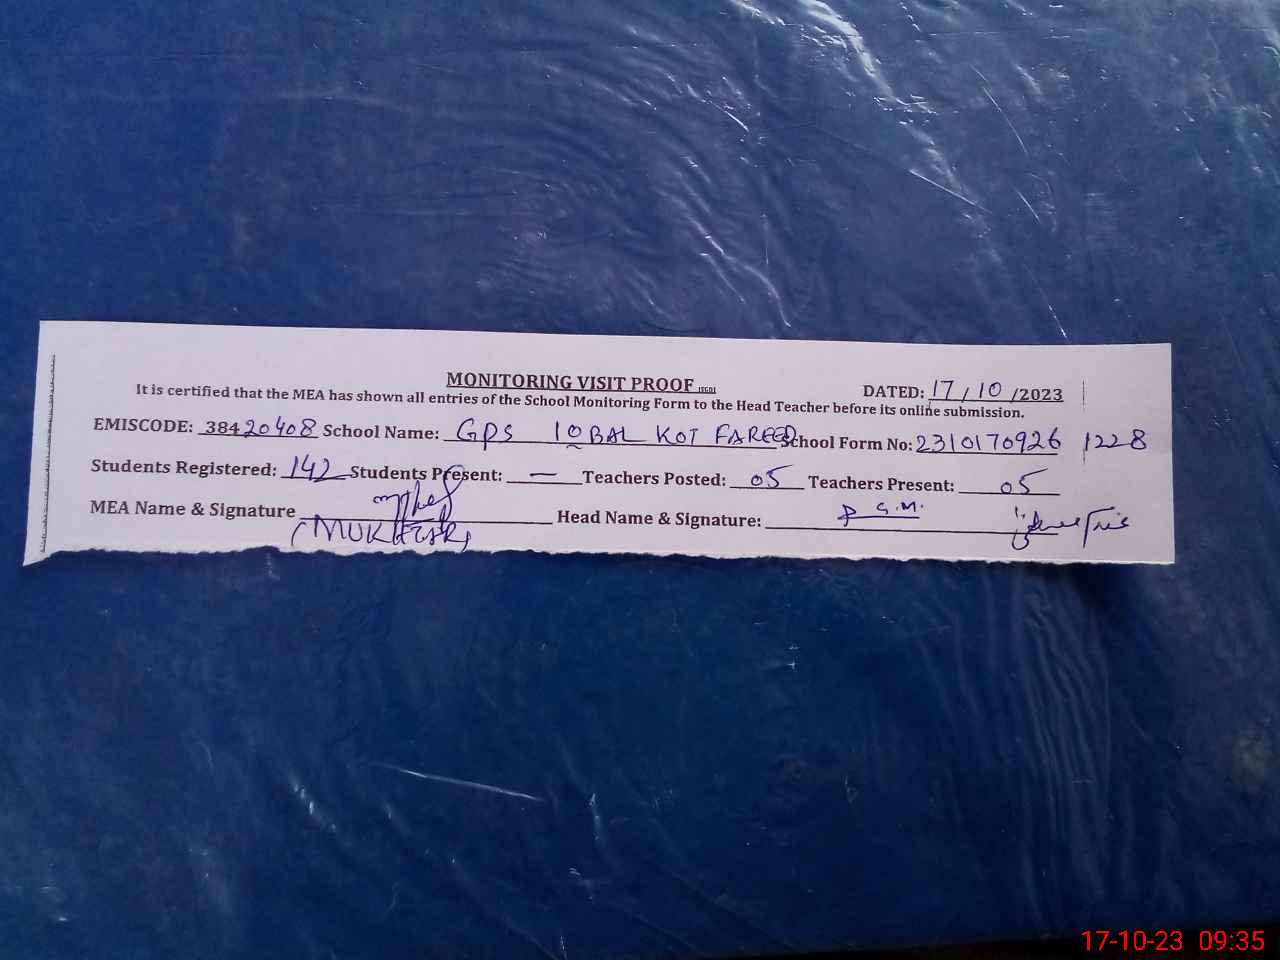 MONITORING VISIT PROOF
DATED: 17/10/2023
It is certified that the MEA has shown all entries of the School Monitoring Form to the Head Teacher before its online submission.
EMISCODE: 38420408 School Name: GPS IQBAL KOT FAREED School Form No: 2310170926 1228
Students Registered: 142 Students Present: — Teachers Posted: 05 Teachers Present: 05
MEA Name & Signature Head Name & Signature:
17-10-23 09:35